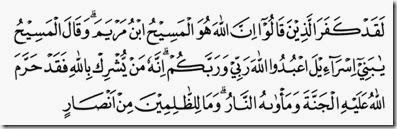 لَقَدْ كَفَرَ الَّذِيْنَ قَالُوْٓا اِنَّ اللّٰهَ هُوَ الْمَسِيْحُ ابْنُ مَرْيَمَ ۗ وَقَالَ الْمَسِيْحُ
يٰبَنِيْٓ اِسْرَاۤءِيْلَ اعْبُدُوا اللّٰهَ رَبِّيْ وَرَبَّكُمْ ۗ اِنَّهٗ مَنْ يُّشْرِكْ بِاللّٰهِ فَقَدْ حَرَّمَ
اللّٰهُ عَلَيْهِ الْجَنَّةَ وَمَأْوٰىهُ النَّارُ ۗ وَمَا لِلظّٰلِمِيْنَ مِنْ اَنْصَارٍ